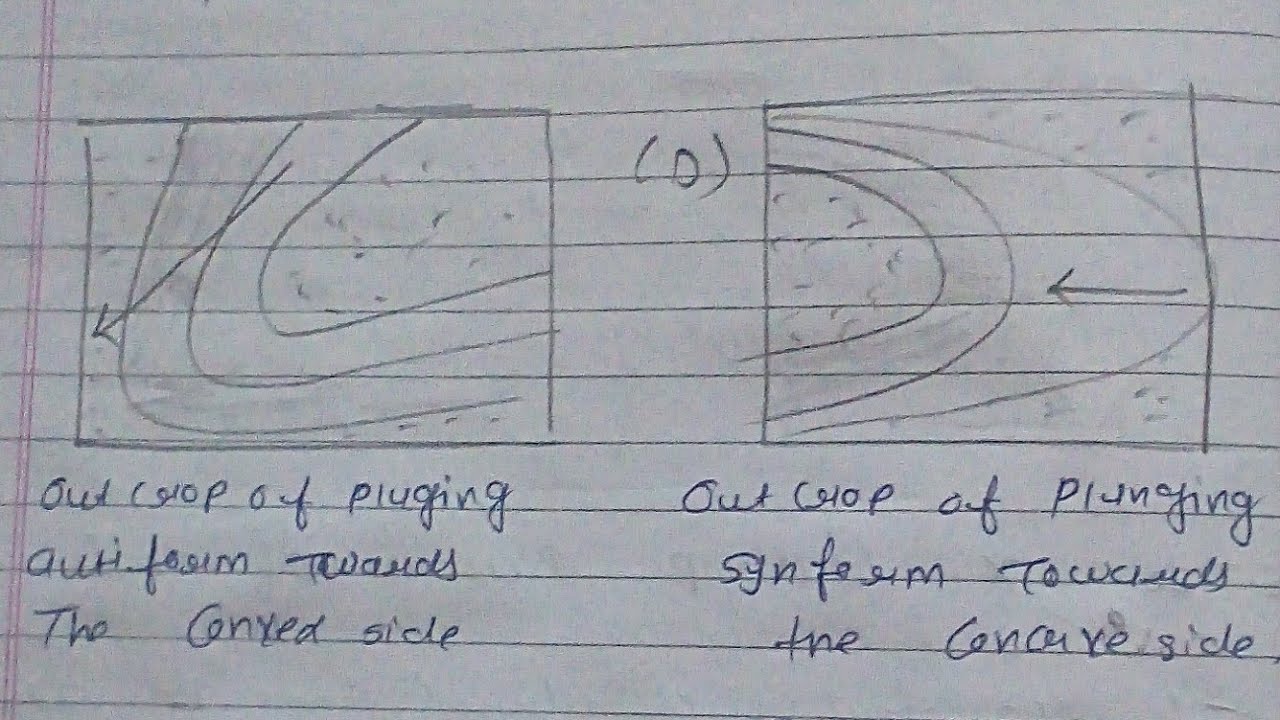 (D)
Out crop of pluging
antiform Towards
The Convex side
Out crop of Plunging
Synform Towards
the Concave side.